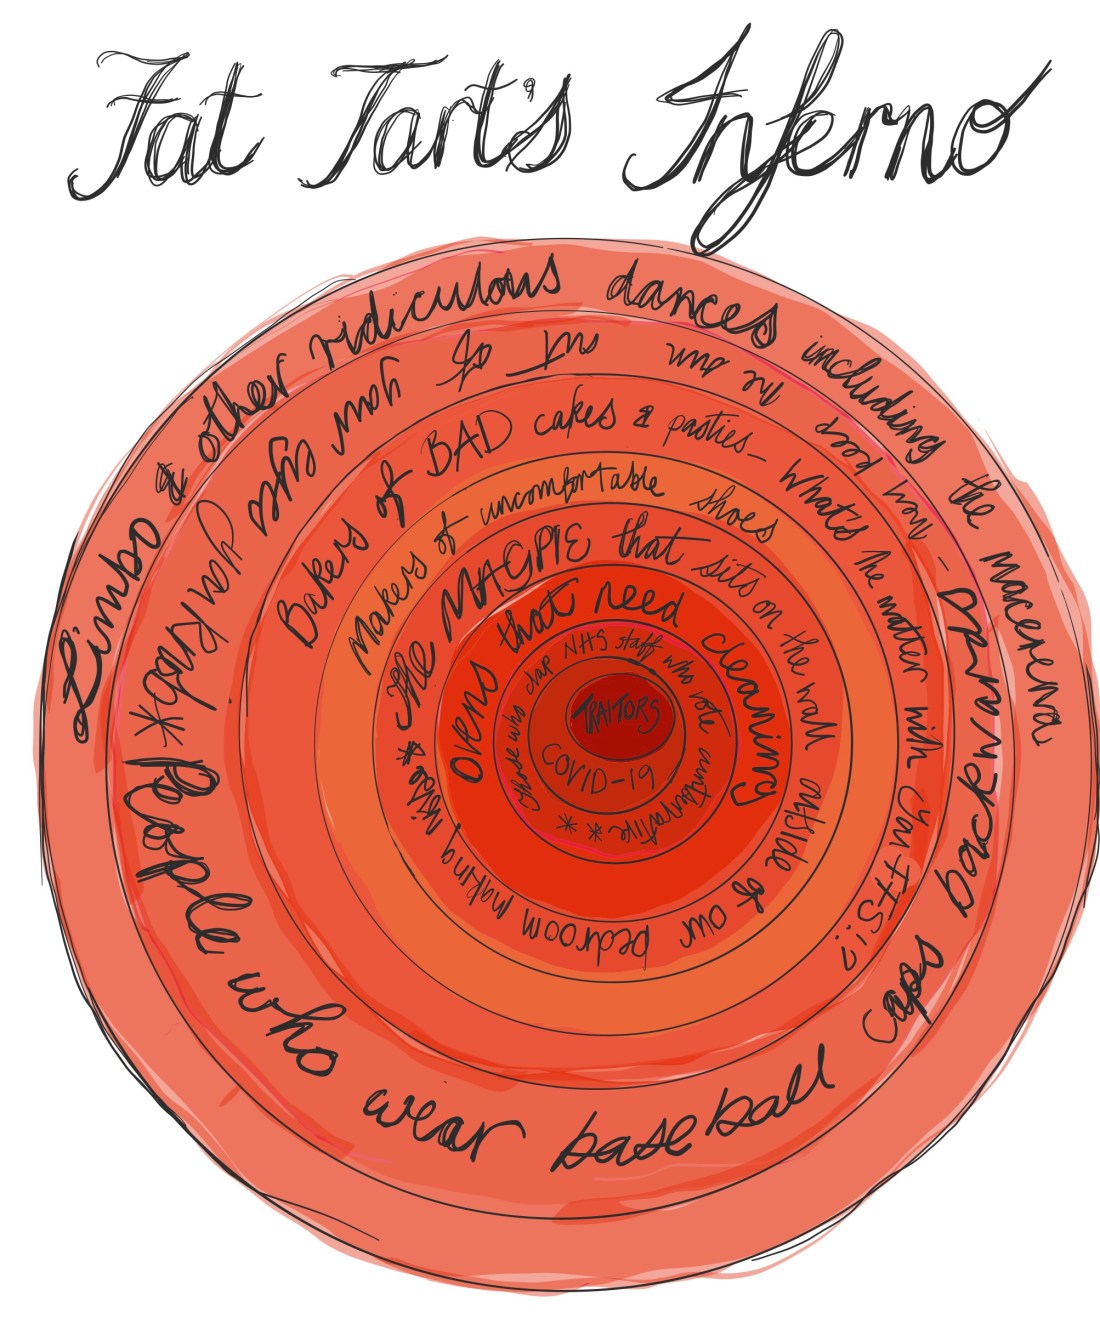 Fat Tart's Inferno
Limbo & other ridiculous dances including the macerena
People who wear baseball caps backwards - how the sun out of your eyes you knob*
Bakers of BAD cakes & pasties - What's the matter with You
Makers of uncomfortable shoes
The MAGPIE that sits on the wall outside of our bedroom making noise *
Ovens that need cleaning
those who clap NHS staff who vote cuntservative **
COVID-19
TRAITORS